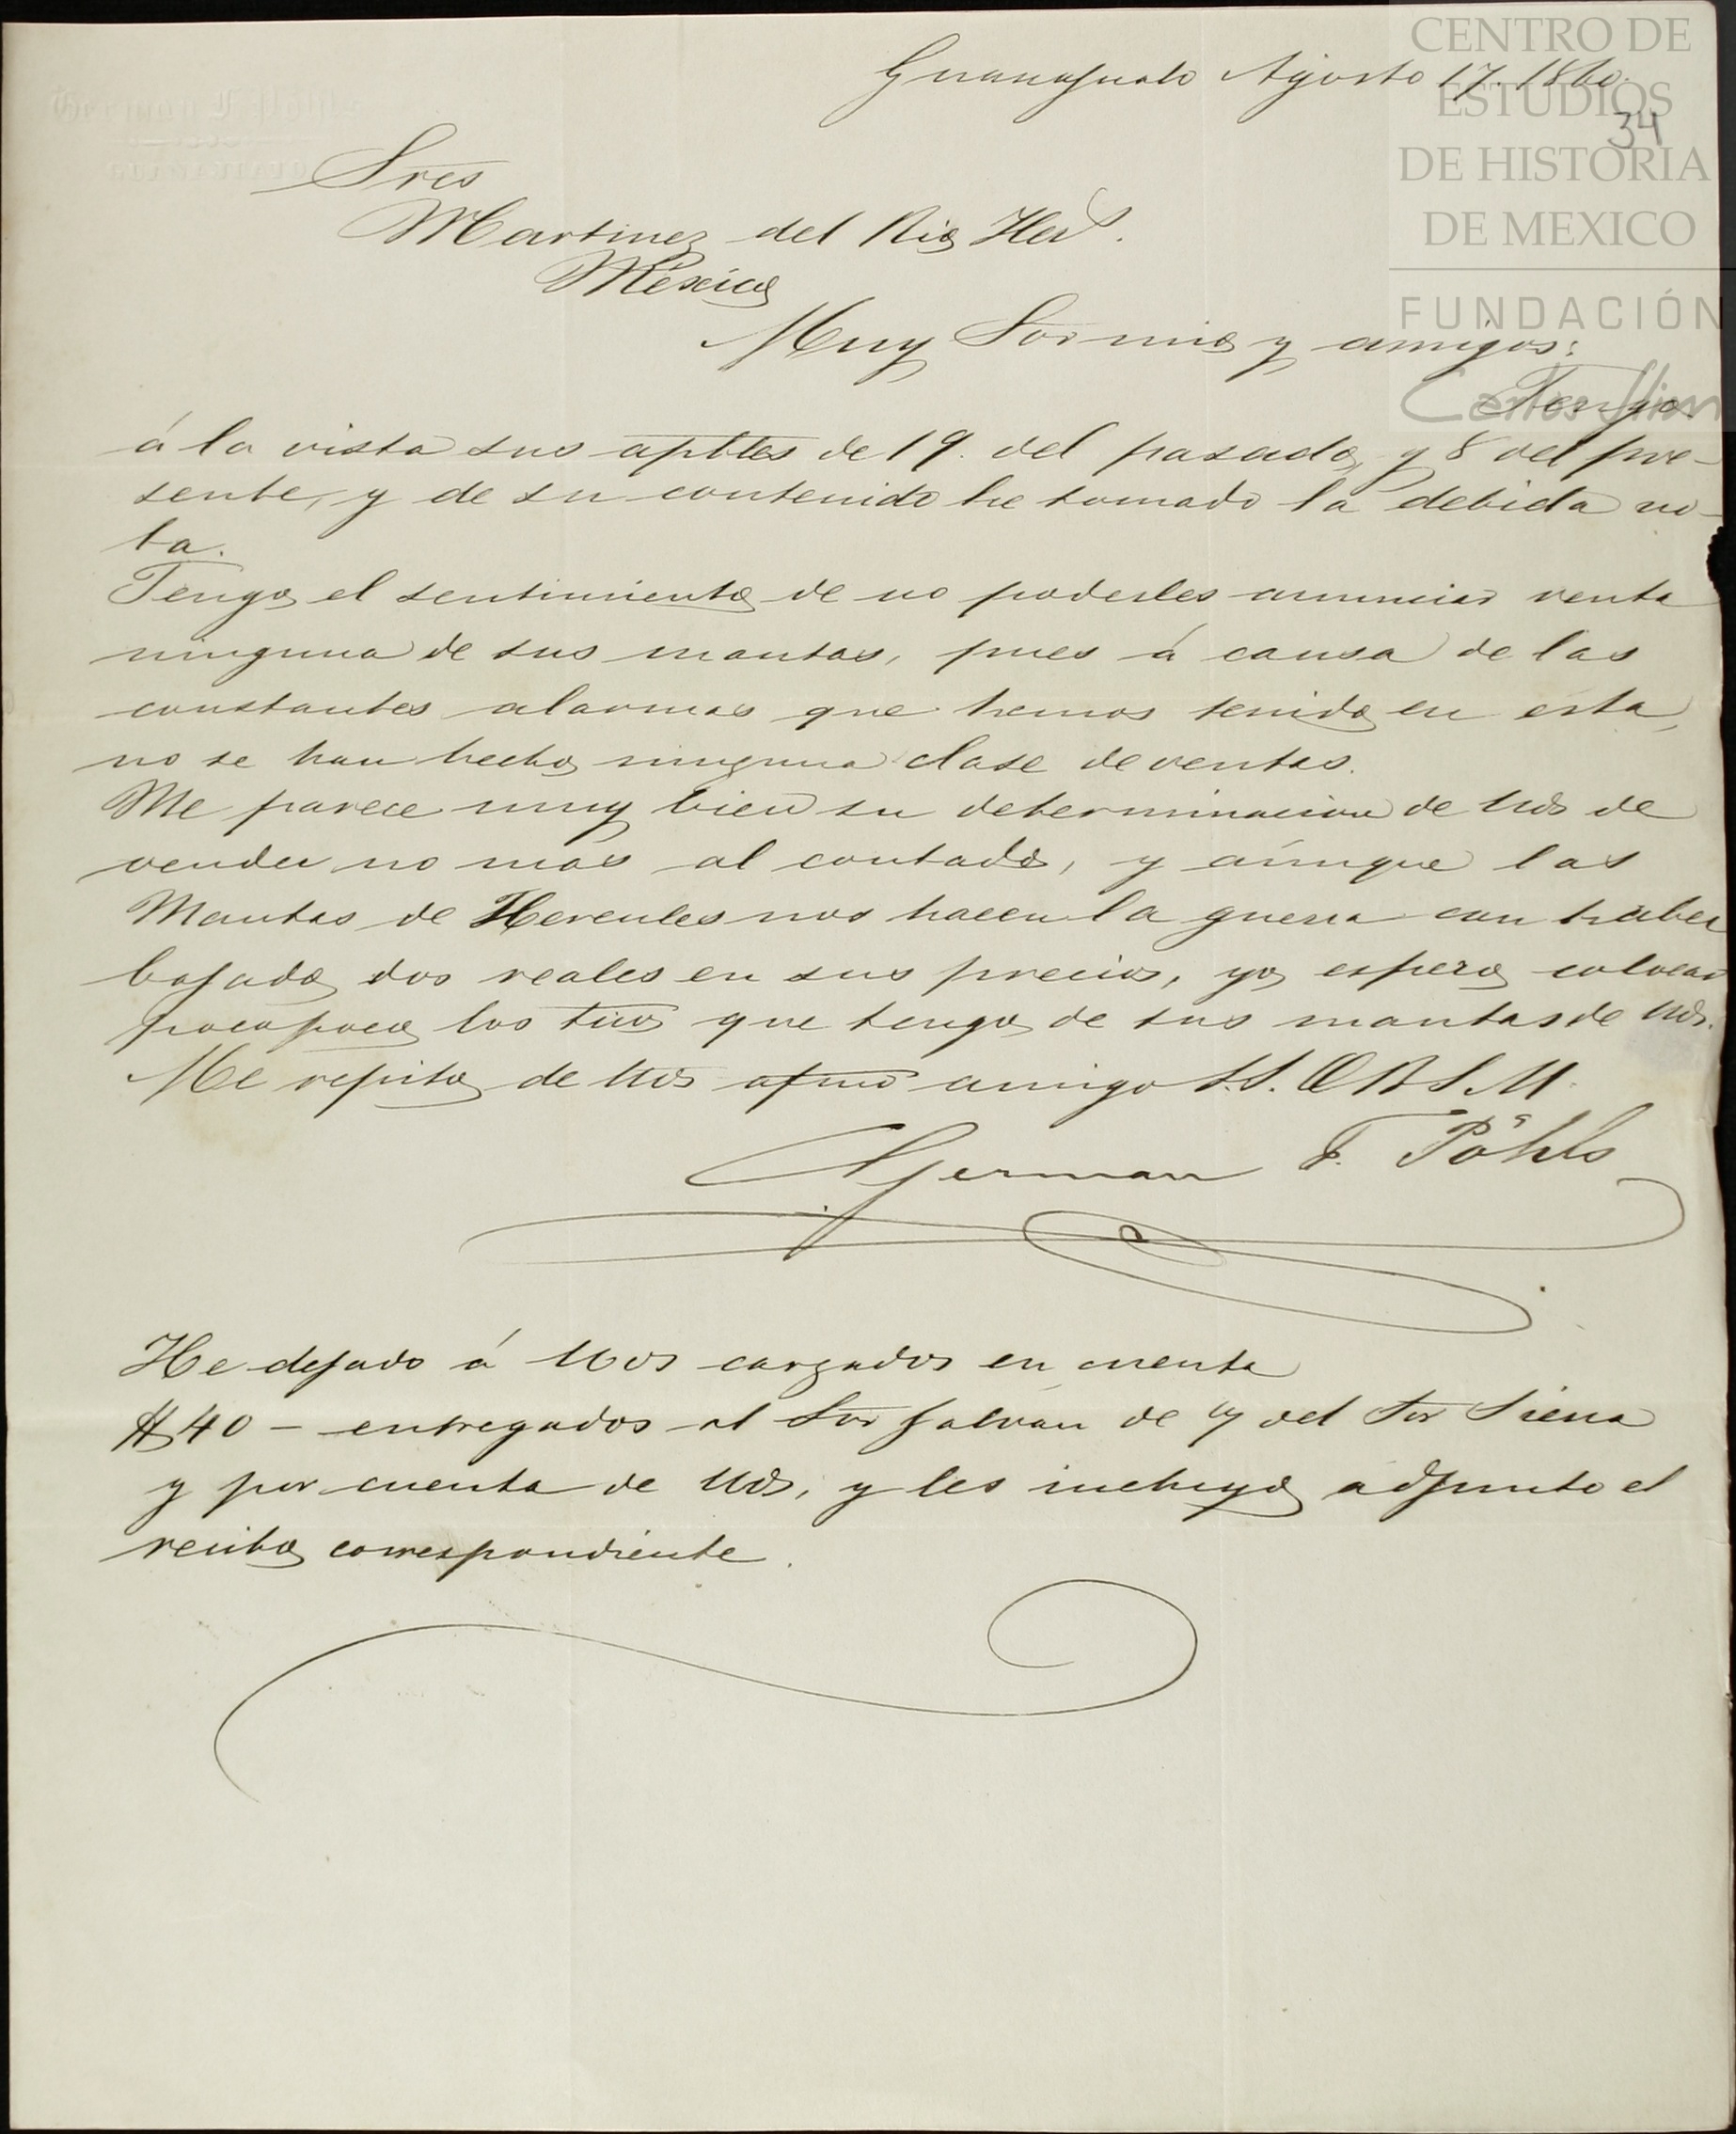 CENTRO DE
ESTUDIOS
DE HISTORIA
DE MEXICO
FUNDACIÓN
Carlos Slim
Guanajuato Agosto 17. 1860.
34
German F. Pöhls
GUANAJUATO
Sres
Martinez del Rio Hers.
México
Muy Sor mio y amigos:
Tengo
á la vista sus aptbles de 19. del pasado, y 8 del pre-
sente, y de su contenido he tomado la debida no-
ta.
Tengo el sentimiento de no poderles anunciar venta
ninguna de sus mantas, pues á causa de las
constantes alarmas que hemos tenido en esta,
no se han hecho ninguna clase de ventas.
Me parece muy bien su determinacion de Uds de
vender no mas al contado, y aúnque las
Mantas de Hercules nos hacen la guerra con haber
bajado dos reales en sus precios, yo espero colocar
poco a poco los tios que tengo de sus mantas de Uds.
Me repito de Uds afmo amigo S.S. Q B S M.
German F. Pöhls
He dejado á Uds cargados en cuenta
$40 - entregados al Sor Galvan de o/ del Sor Sierra
y por cuenta de Uds, y les incluyo adjunto el
recibo correspondiente.